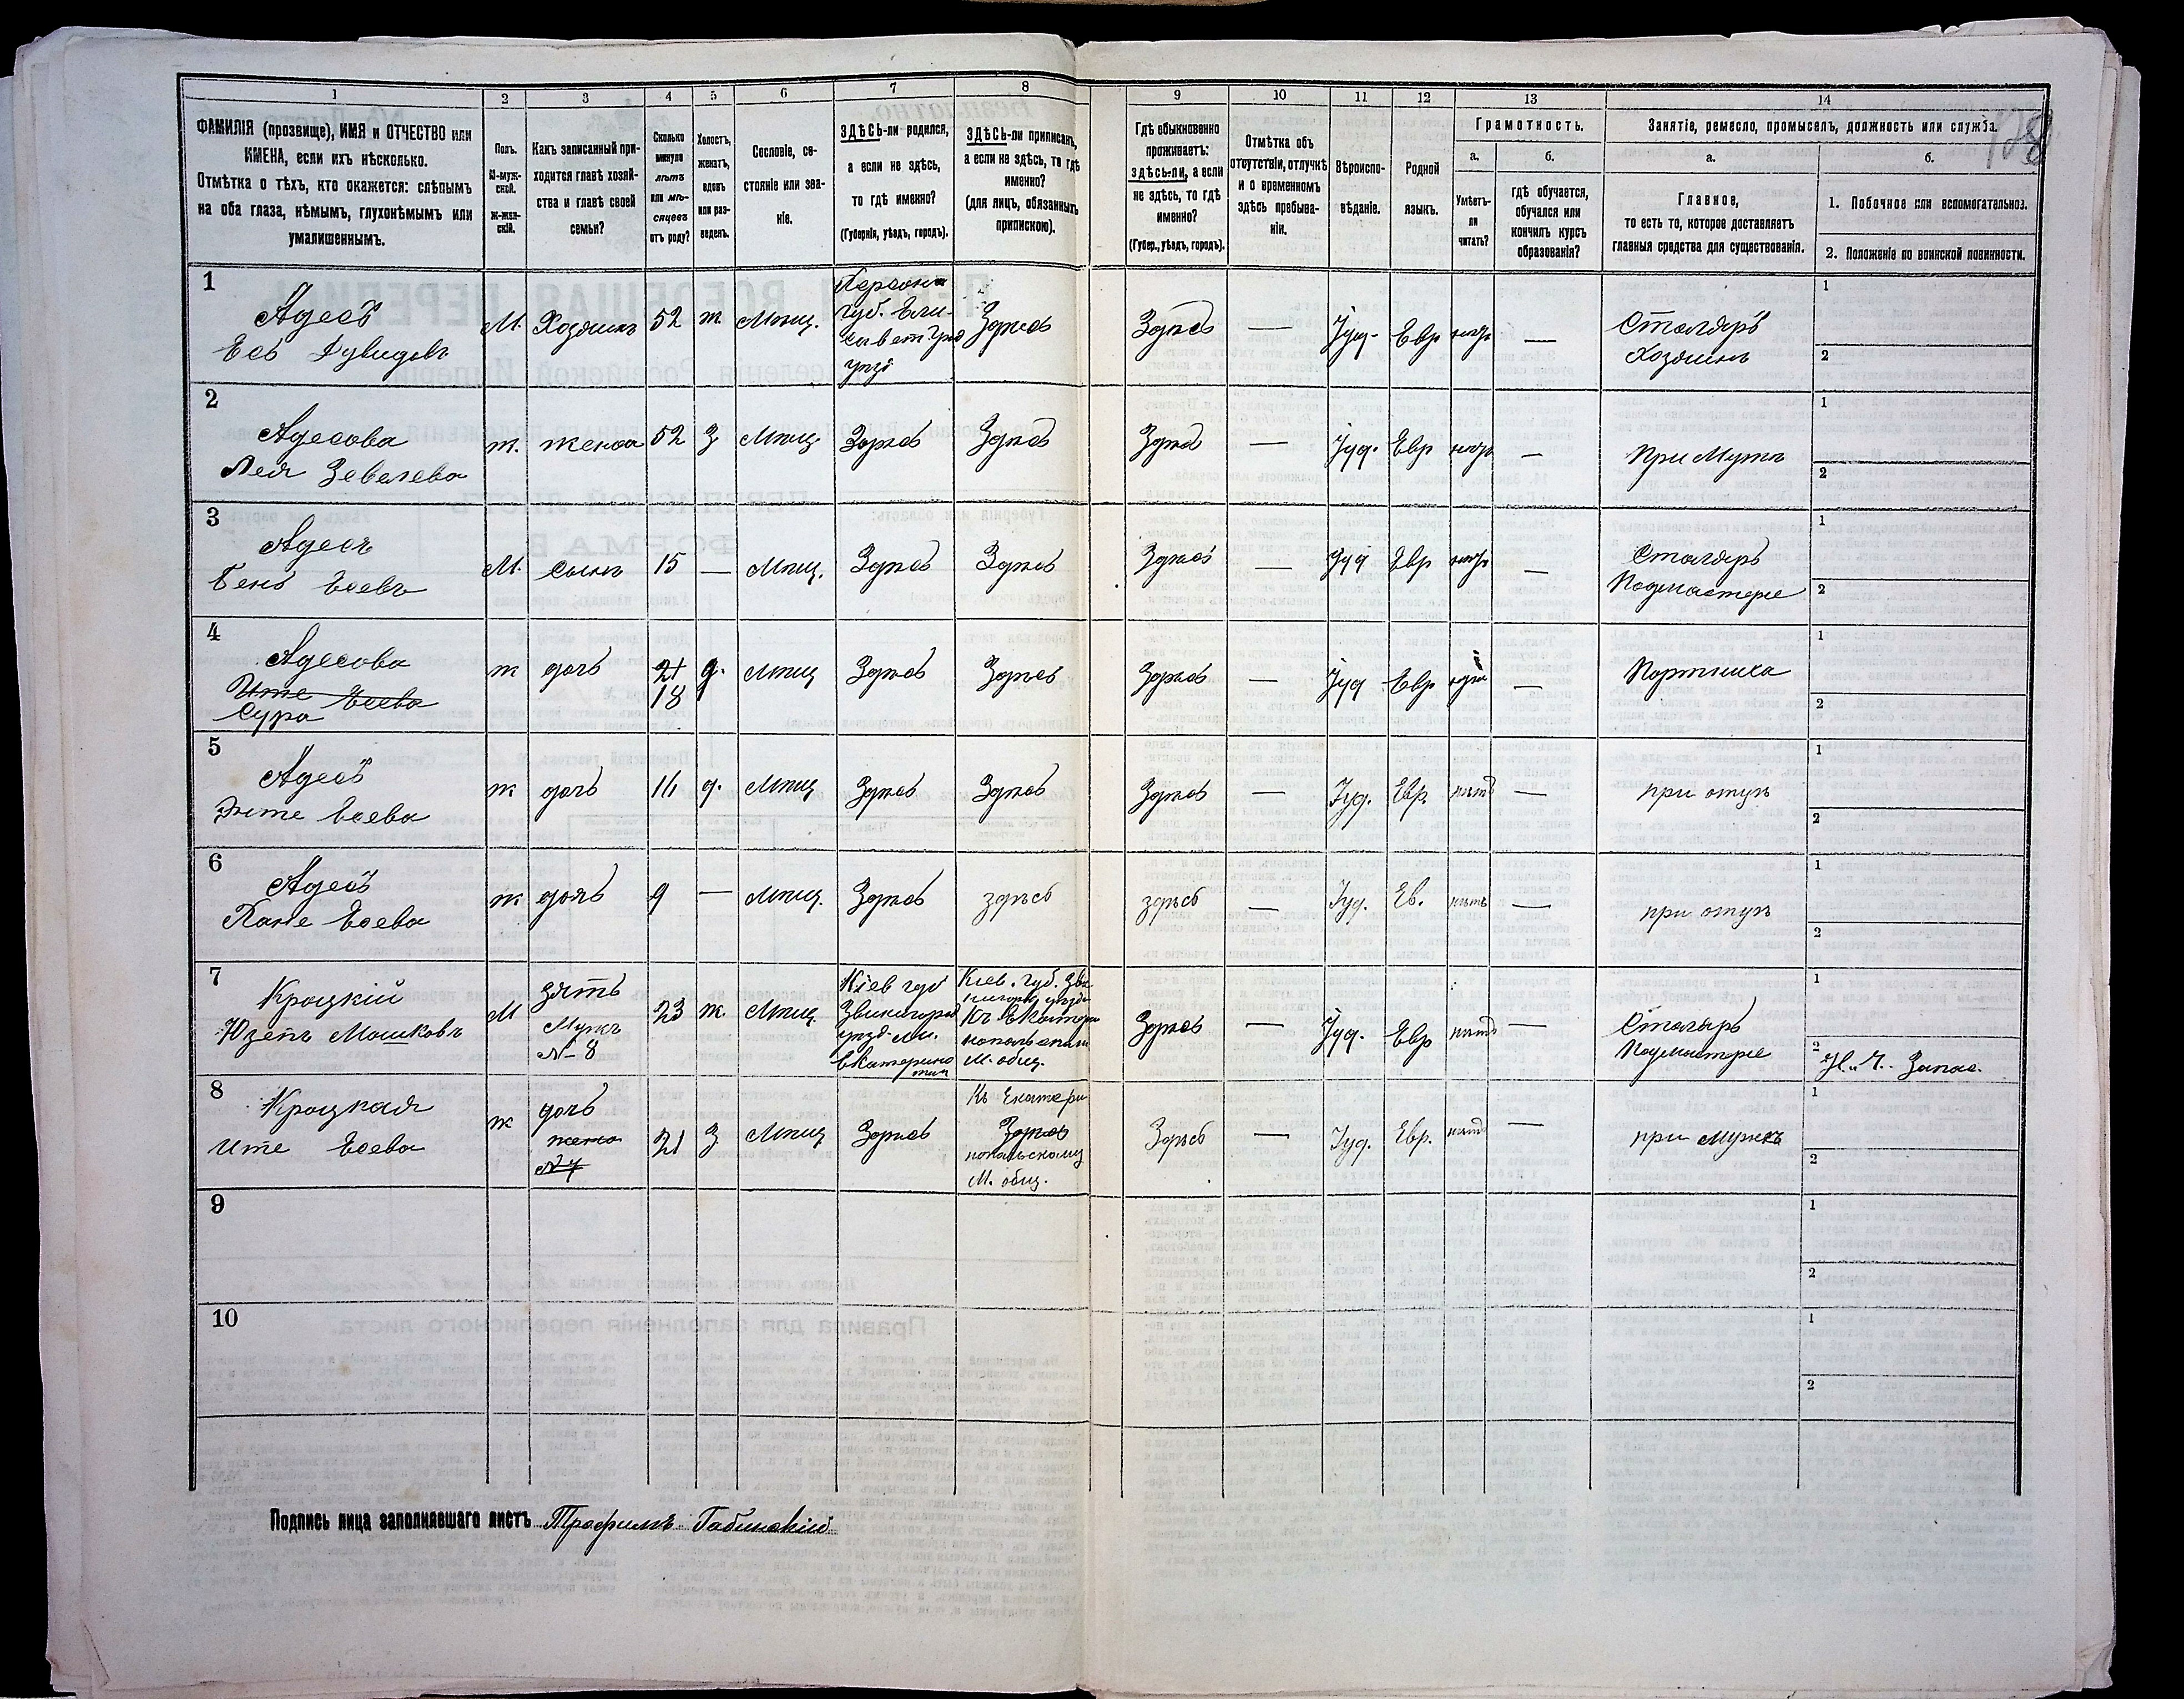 1 2 3 4 5 6 7 8 9 10 11 12 13 14
ФАМИЛІЯ (прозвище), ИМЯ и ОТЧЕСТВО или
ИМЕНА, если ихъ нѣсколько.
Отмѣтка о тѣхъ, кто окажется: слѣпымъ
на оба глаза, нѣмымъ, глухонѣмымъ или
умалишеннымъ.
Полъ.
М-муж-
ской.
Ж-жен-
скій.
Какъ записанный при-
ходится главѣ хозяй-
ства и главѣ своей
семьи?
Сколько
минуло
лѣтъ
или мѣ-
сяцевъ
отъ роду?
Холостъ,
женатъ,
вдовъ
или раз-
веденъ.
Сословіе, со-
стояніе или зва-
ніе.
ЗДѢСЬ-ли родился,
а если не здѣсь,
то гдѣ именно?
(Губернія, уѣздъ, городъ).
ЗДѢСЬ-ли приписанъ,
а если не здѣсь, то гдѣ
именно?
(для лицъ, обязанныхъ
припискою).
Гдѣ обыкновенно
проживаетъ:
здѣсь-ли, а если
не здѣсь, то гдѣ
именно?
(Губер., уѣздъ, городъ).
Отмѣтка объ
отсутствіи, отлучкѣ
и о временномъ
здѣсь пребыва-
ніи.
Вѣроиспо-
вѣданіе.
Родной
языкъ.
Грамотность.
а.
Умѣетъ-
ли
читать?
б.
гдѣ обучается,
обучался или
кончилъ курсъ
образованія?
Занятіе, ремесло, промыселъ, должность или служба.
а.
Главное,
то есть то, которое доставляетъ
главныя средства для существованія.
б.
1. Побочное или вспомогательное.
2. Положеніе по воинской повинности.
128
1
Адесъ
Есь Дувидовъ
М. Хозяинъ 52 ж. Мѣщ.
Херсонъ
губ. Ели-
саветград
уѣзд
Здѣсь Здѣсь — Іуд. Евр —
Столяръ
Хозяинъ
1
2
2
Адесова
Лея Зевелева
ж. жена 52 З Мѣщ. Здѣсь Здѣсь Здѣсь — Іуд. Евр —
при Мужѣ
1
2
3
Адесъ
Бень Есевъ
М. Сынъ 15 — Мѣщ. Здѣсь Здѣсь Здѣсь — Іуд Евр —
Столяръ
Подмастерье
1
2
4
Адесова
Ите Есева
Сура
ж дочь 21
18
д. Мѣщ Здѣсь Здѣсь Здѣсь — Іуд Евр —
Портниха
1
2
5
Адесъ
Енте Есева
ж дочь 11 д. Мѣщ Здѣсь Здѣсь Здѣсь — Іуд. Евр. нѣтъ —
при отцѣ
1
2
6
Адесъ
Хане Есева
ж дочь 9 — Мѣщ. Здѣсь здѣсь здѣсь — Іуд. Ев. нѣтъ —
при отцѣ
1
2
7
Кроцкій
Юзепъ Мошковъ
М
зять
Мужъ
№ 8
23 ж. Мѣщ.
Кіев губ
Звенигород
уѣзд М.
Екатерино
поль
Кіев. губ. Зве
нигород уѣзд
Къ Екатери
нопольском
М. общ.
Здѣсь — Іуд. Евр нѣтъ —
Столяръ
Подмастерье
1
2 Н. Ч. Запас.
8
Кроцкая
Ите Есева
ж
дочь
жена
№ 7
21 З Мѣщ Здѣсь
Къ Екатери
Здѣсь
нопольскому
М. общ.
Здѣсь — Іуд. Евр. нѣтъ —
при Мужѣ
1
2
9
1
2
10
1
2
Подпись лица заполнявшаго листъ Трофимъ Габинскій